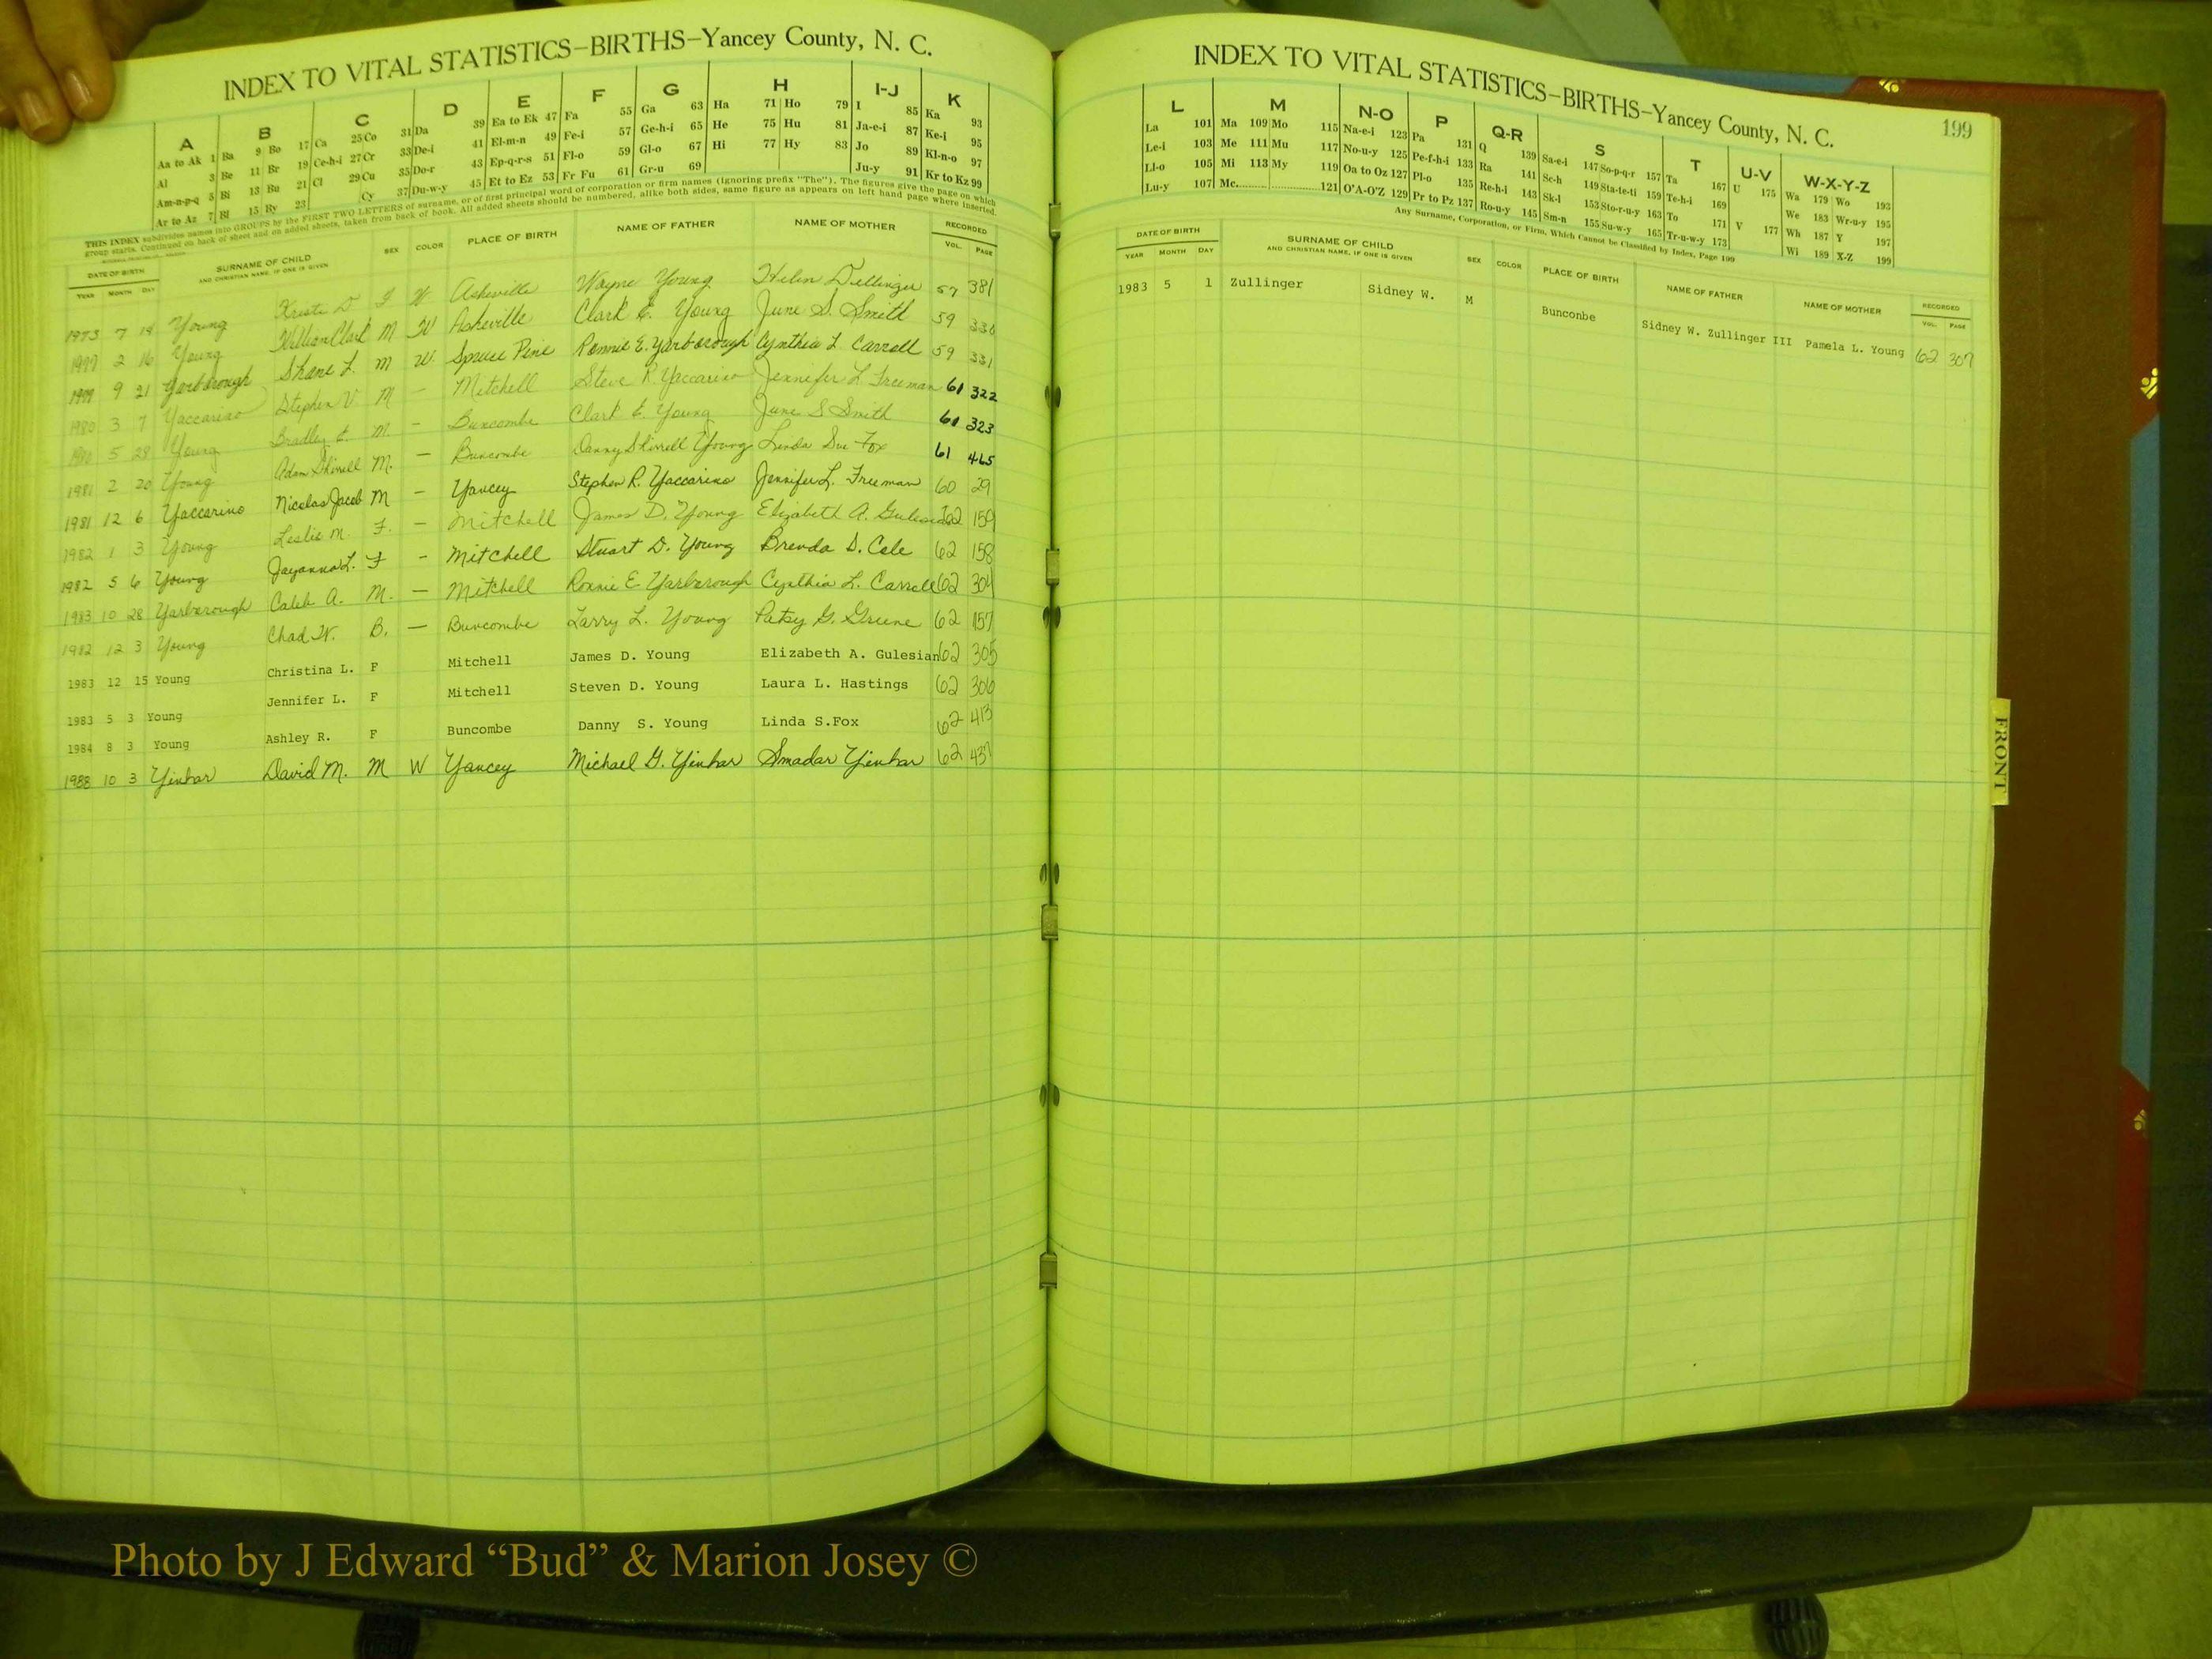 INDEX TO VITAL STATISTICS–BIRTHS–Yancey County, N. C.
A B C D E F G H I-J K
Aa to Ak 1 Ba 9 Bo 17 Ca 25 Co 31 Da 39 Ea to Ek 47 Fa 55 Ga 63 Ha 71 Ho 79 I 85 Ka 93
Al 3 Be 11 Br 19 Ce-h-i 27 Cr 33 De-i 41 El-m-n 49 Fe-i 57 Ge-h-i 65 He 75 Hu 81 Ja-e-i 87 Ke-i 95
Am-n-p-q 5 Bi 13 Bu 21 Cl 29 Cu 35 Do-r 43 Ep-q-r-s 51 Fl-o 59 Gl-o 67 Hi 77 Hy 83 Jo 89 Kl-n-o 97
Ar to Az 7 Bl 15 By 23 Cy 37 Du-w-y 45 Et to Ez 53 Fr Fu 61 Gr-u 69 Ju-y 91 Kr to Kz 99
THIS INDEX subdivides names into GROUPS by the FIRST TWO LETTERS of surname, or of first principal word of corporation or firm names (ignoring prefix "The"). The figures give the page on which
group starts. Continued on back of sheet and on added sheets, taken from back of book. All added sheets should be numbered, alike both sides, same figure as appears on left hand page where inserted.
DATE OF BIRTH SURNAME OF CHILD SEX COLOR PLACE OF BIRTH NAME OF FATHER NAME OF MOTHER RECORDED
YEAR MONTH DAY AND CHRISTIAN NAME, IF ONE IS GIVEN VOL. PAGE
1973 7 19 Young Krista D F W Asheville Wayne Young Helen Dellinger 57 381
1979 2 16 Young William Clark M W Asheville Clark E. Young June S. Smith 59 330
1979 9 21 Yarborough Shane L. M W Spruce Pine Ronnie E. Yarborough Cynthia L. Carroll 59 331
1980 3 7 Yaccarino Stephen V. M – Mitchell Steve R. Yaccarino Jennifer L. Freeman 61 322
5 28 Young Bradley E. M. – Buncombe Clark E. Young June S Smith 61 323
1981 2 20 Young Adam Shirrell M. – Buncombe Danny Shirrell Young Linda Sue Fox 61 465
1981 12 6 Yaccarino Nicolas Jacob M – Yancey Stephen R. Yaccarino Jennifer L. Freeman 60 29
1982 1 3 Young Leslie M. F. – Mitchell James D. Young Elizabeth A. Gulesian 62 159
1982 5 6 Young Jayanna L. F – Mitchell Stuart D. Young Brenda S. Cole 62 158
1983 10 28 Yarborough Caleb A. M. – Mitchell Ronnie E Yarborough Cynthia L. Carroll 62 304
1982 12 3 Young Chad W. B. – Buncombe Larry L. Young Patsy G. Greene 62 157
1983 12 15 Young Christina L. F Mitchell James D. Young Elizabeth A. Gulesian 62 305
1983 5 3 Young Jennifer L. F Mitchell Steven D. Young Laura L. Hastings 62 306
1984 8 3 Young Ashley R. F Buncombe Danny S. Young Linda S.Fox 62 413
1988 10 3 Yinhar David M. M W Yancey Michael G. Yinhar Smadar Yinhar 62 437
INDEX TO VITAL STATISTICS–BIRTHS–Yancey County, N. C.
199
L M N-O P Q-R S T U-V W-X-Y-Z
La 101 Ma 109 Mo 115 Na-e-i 123 Pa 131 Q 139 Sa-e-i 147 So-p-q-r 157 Ta 167 U 175 Wa 179 Wo 193
Le-i 103 Me 111 Mu 117 No-u-y 125 Pe-f-h-i 133 Ra 141 Sc-h 149 Sta-te-ti 159 Te-h-i 169 We 183 Wr-u-y 195
Ll-o 105 Mi 113 My 119 Oa to Oz 127 Pl-o 135 Re-h-i 143 Sk-l 153 Sto-r-u-y 163 To 171 V 177 Wh 187 Y 197
Lu-y 107 Mc 121 O'A-O'Z 129 Pr to Pz 137 Ro-u-y 145 Sm-n 155 Su-w-y 165 Tr-u-w-y 173 Wi 189 X-Z 199
Any Surname, Corporation, or Firm, Which Cannot be Classified by Index, Page 199
DATE OF BIRTH SURNAME OF CHILD SEX COLOR PLACE OF BIRTH NAME OF FATHER NAME OF MOTHER RECORDED
YEAR MONTH DAY AND CHRISTIAN NAME, IF ONE IS GIVEN VOL. PAGE
1983 5 1 Zullinger Sidney W. M Bunconbe Sidney W. Zullinger III Pamela L. Young 62 307
FRONT
Photo by J Edward “Bud” & Marion Josey ©